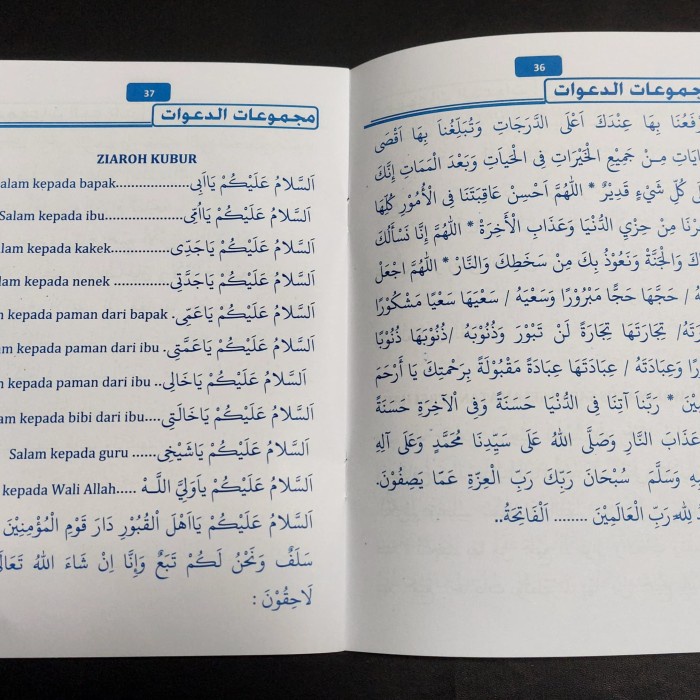 36
مجموعات الدعوات
بِهَا عِنْدَكَ اَعْلَى الدَّرَجَاتِ وَتُبَلِّغُنَا بِهَا اَقْصَى
مِنْ جَمِيْعِ الْخَيْرَاتِ فِى الْحَيَاتِ وَبَعْدَ الْمَمَاتِ اِنَّكَ
كُلِّ شَيْءٍ قَدِيْرٌ * اَللّٰهُمَّ اَحْسِنْ عَاقِبَتَنَا فِى الْأُمُوْرِ كُلِّهَا
مِنْ حِزْيِ الدُّنْيَا وَعَذَابِ الْأَخِرَةْ * اَللّٰهُمَّ إِنَّا نَسْأَلُكَ
وَالْجَنَّةْ وَنَعُوْذُ بِكَ مِنْ سَخَطِكَ وَالنَّارْ * اَللّٰهُمَّ اجْعَلْ
/ حَجَّهَا حَجًّا مَبْرُوْرًا وَسَعْيَهُ / سَعْيَهَا سَعْيًا مَشْكُوْرًا
/ تِجَارَتَهَا تِجَارَةً لَنْ تَبُوْرَ وَذُنُوْبَهُ /ذُنُوْبَهَا ذُنُوْبًا
وَعِبَادَتَهُ / عِبَادَتَهَا عِبَادَةً مَقْبُوْلَةً بِرَحْمَتِكَ يَا أَرْحَمَ
* رَبَّنَا آتِنَا فِى الدُّنْيَا حَسَنَةً وَفِى الْآخِرَةِ حَسَنَةً
عَذَابَ النَّارِ وَصَلَّى اللهُ عَلَى سَيِّدِنَا مُحَمَّدٍ وَعَلَى آلِهِ
وَسَلَّمَ سُبْحَانَ رَبِّكَ رَبِّ الْعِزَّةِ عَمَّا يَصِفُوْنَ.
لِلّٰهِ رَبِّ الْعَالَمِيْنَ ........ اَلْفَاتِحَةْ..
37
مجموعات الدعوات
ZIAROH KUBUR
اَلسَّلَامُ عَلَيْكُمْ يَااَبِى..................alam kepada bapak
اَلسَّلَامُ عَلَيْكُمْ يَااُمِّى....................Salam kepada ibu
اَلسَّلَامُ عَلَيْكُمْ يَاجَدِّى.................alam kepada kakek
اَلسَّلَامُ عَلَيْكُمْ يَاجَدَّتِى ...............lam kepada nenek
اَلسَّلَامُ عَلَيْكُمْ يَاعَمِّى. m kepada paman dari bapak
اَلسَّلَامُ عَلَيْكُمْ يَاعَمَّتِى. am kepada paman dari ibu
اَلسَّلَامُ عَلَيْكُمْ يَاخَالِى.. m kepada paman dari ibu
اَلسَّلَامُ عَلَيْكُمْ يَاخَالَتِى....am kepada bibi dari ibu
اَلسَّلَامُ عَلَيْكُمْ يَاشَيْخِى...... Salam kepada guru
اَلسَّلَامُ عَلَيْكُمْ يَاوَلِيَّ اللّٰهْ.....kepada Wali Allah
اَلسَّلَامُ عَلَيْكُمْ يَااَهْلَ الْقُبُوْرِ دَارَ قَوْمِ الْمُؤْمِنِيْنَ
سَلَفٌ وَنَحْنُ لَكُمْ تَبَعٌ وَإِنَّا اِنْ شَاءَ اللهُ تَعَالَى
لَاحِقُوْنَ :